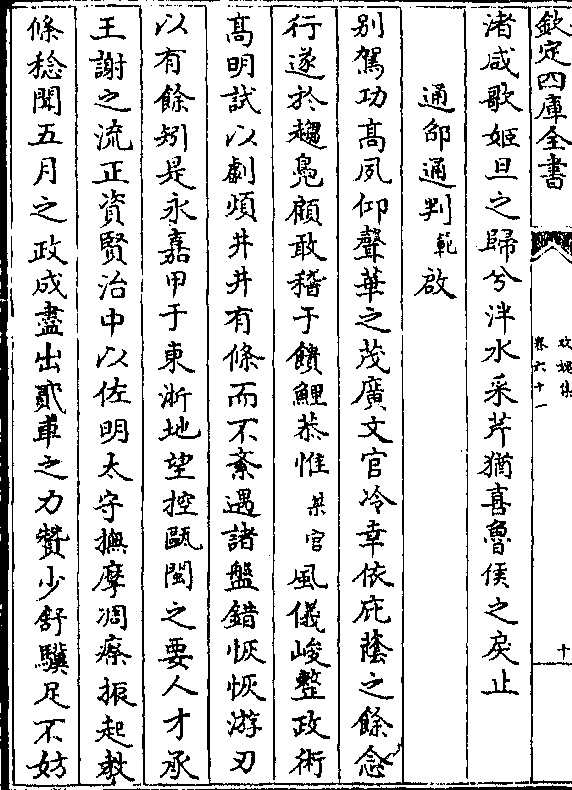 欽定四庫全書
攻媿集
卷六十一
十
渚咸歌姬旦之歸兮泮水采芹猶喜魯侯之戾止
通邰通判範啟
别駕功髙夙仰聲華之茂廣文官冷幸依庇蔭之餘念
行遂於趨鳧顧敢稽于饋鯉恭惟某官風儀峻整政術
髙明試以劇煩井井有條而不紊遇諸盤錯恢恢游刃
以有餘矧是永嘉甲于東浙地望控甌閩之要人才承
王謝之流正資賢治中以佐明太守撫摩凋瘵振起教
條稔聞五月之政成盡出貳車之力贊少舒驥足不妨